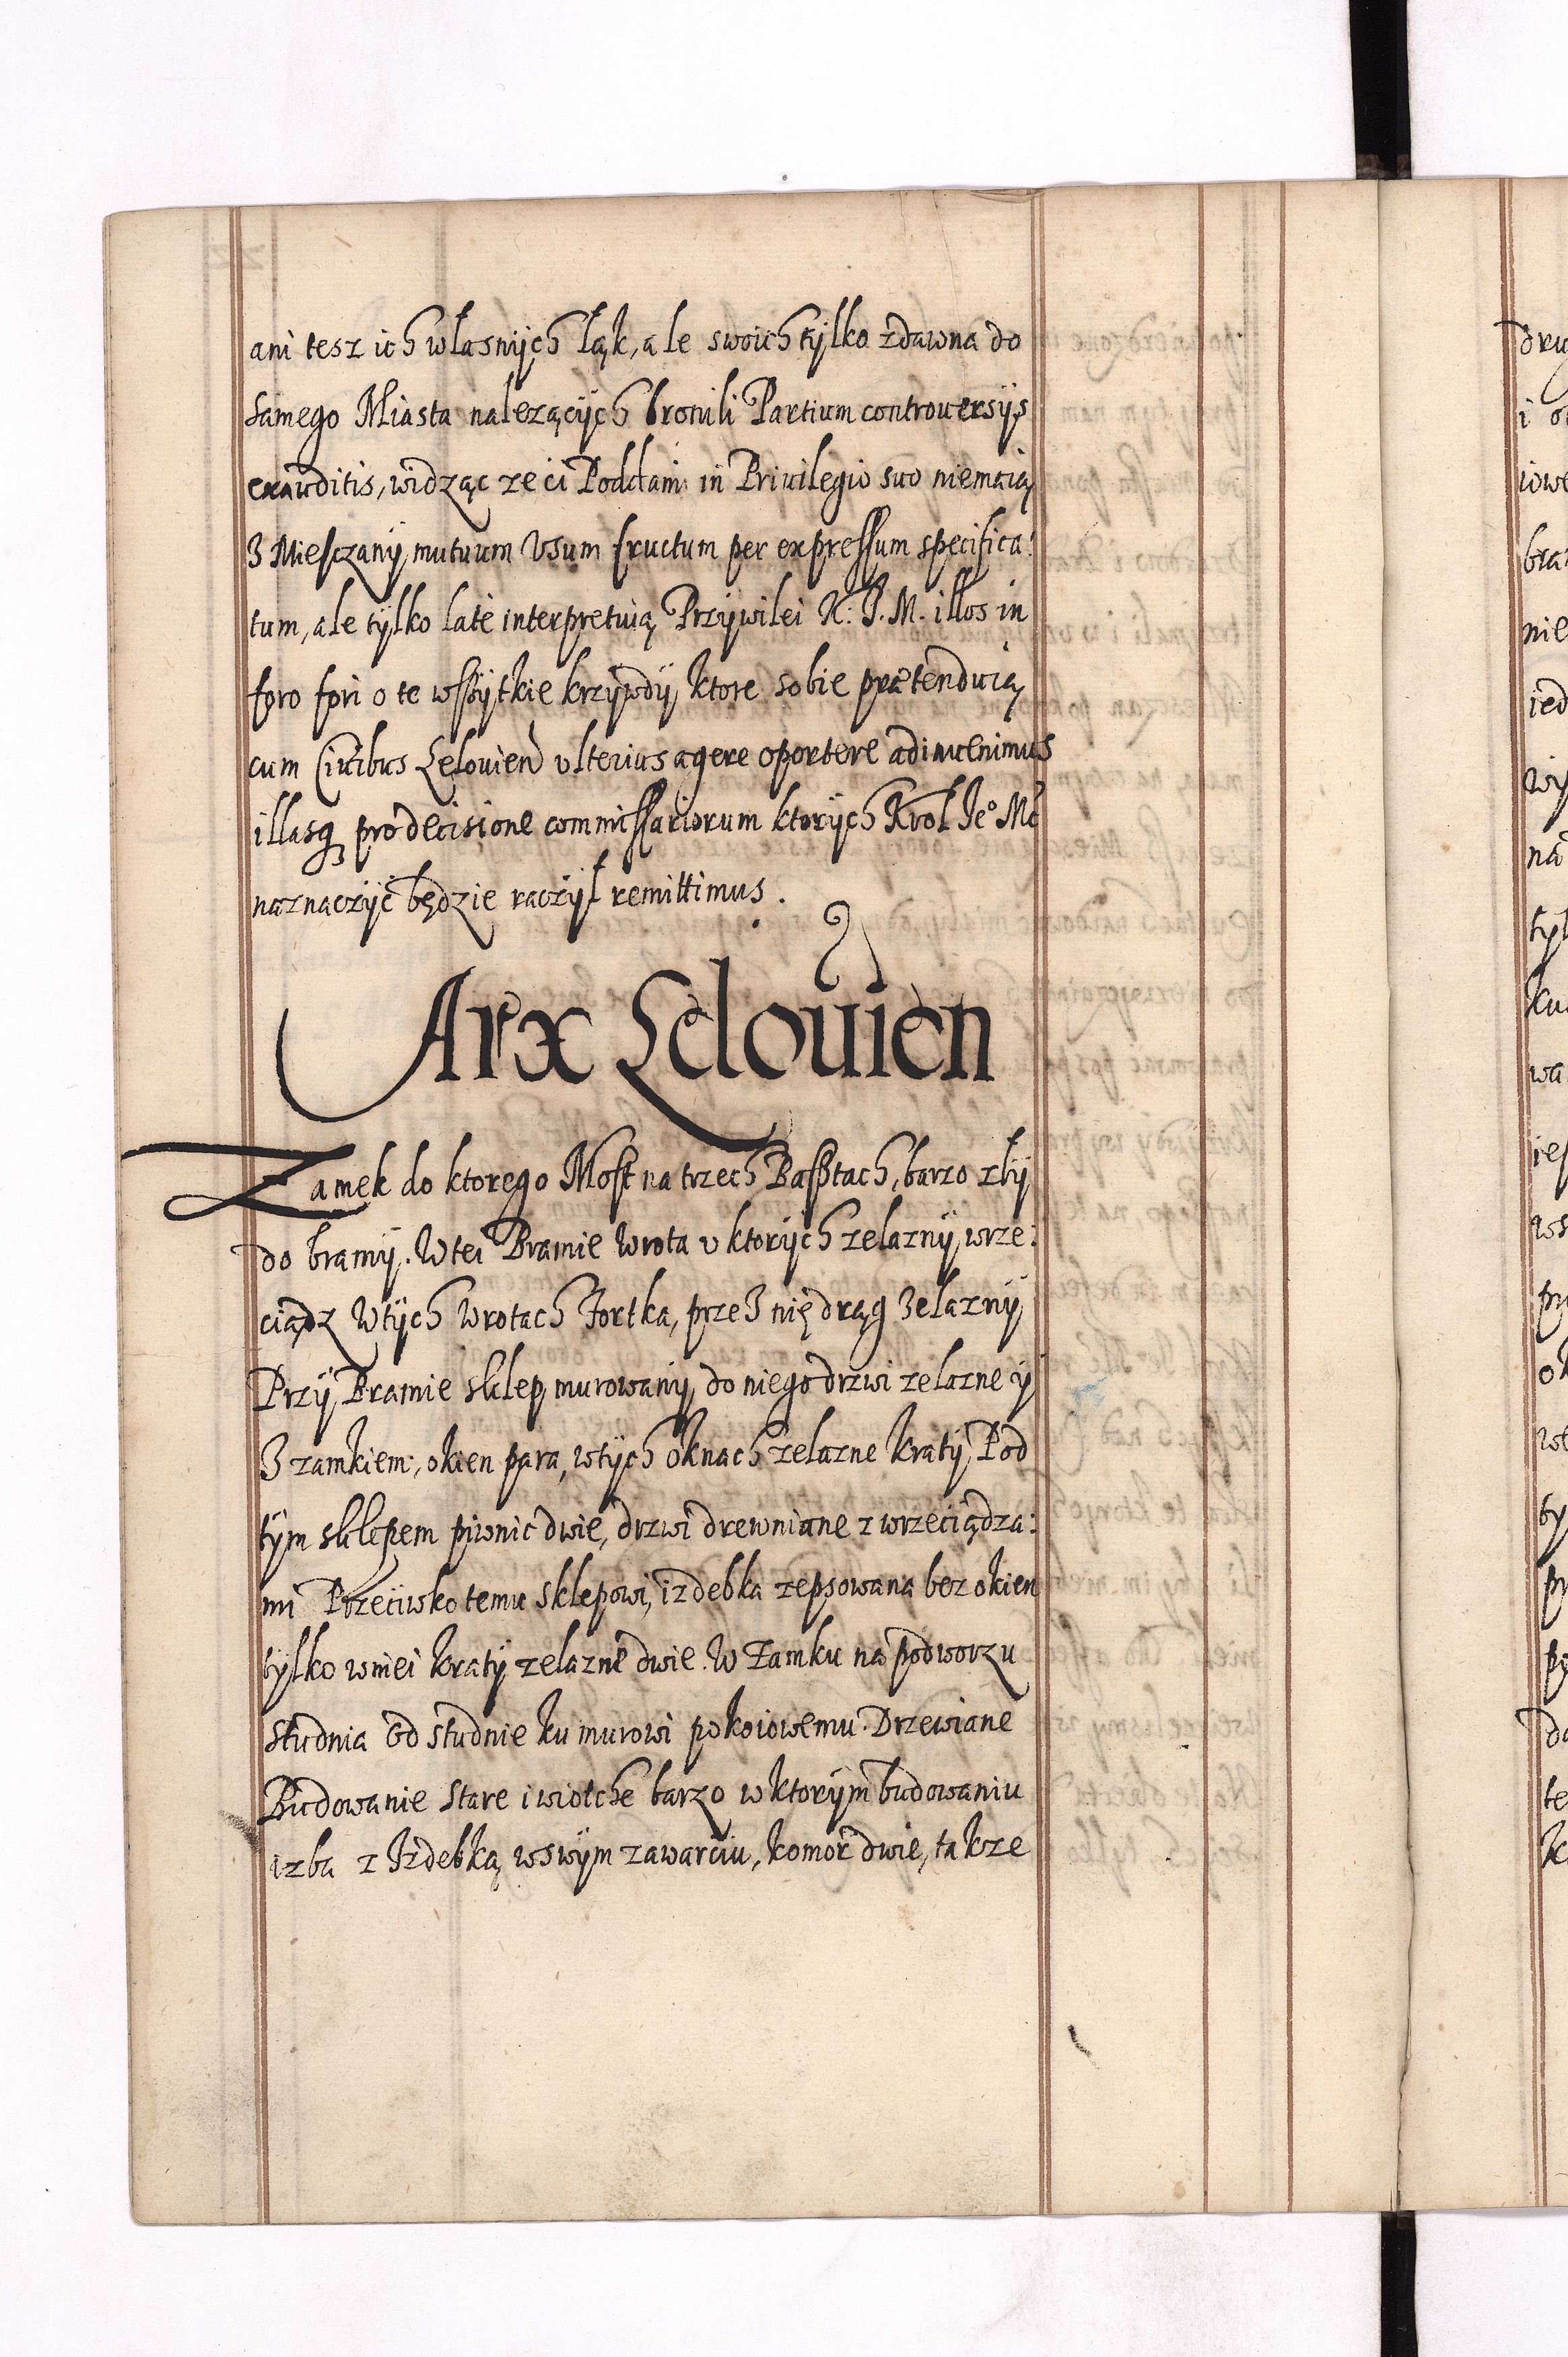 ani tesz ich własnÿch łąk, ale swoich tÿlko zdawna do
samego Miasta nalezącÿch bronili Partium controuersÿs
exauditis, widząc ze ci Poddani in Priuilegio suo niemaią
Z Miesczanÿ mutuum Vsum fructum per expressum specifica:
tum, ale tÿlko latè interpretuią Przÿwilei K: J. M. illos in
foro fori o te wssÿtkie krzÿwdÿ ktore sobie prætenduią
cum Ciuibus Lelouien ulterius agere oportere adinuenimus
illasq pro decisione commissariorum ktorÿch Krol Je° Mć
naznaczÿć będzie raczÿł remittimus.
Arx Lelouien
Zamek do ktorego Most na trzech Basztach, barzo złÿ
do bramÿ. W tei Bramie Wrota v ktorÿch zelaznÿ wrze:
ciądz W tÿch Wrotach Fortka, przez nię drąg zelaznÿ
Przÿ Bramie sklep murowanÿ do niego drzwi zelazne ÿ
Z zamkiem, okien para, w tÿch oknach zelazne kratÿ, Pod
tÿm sklepem piwnic dwie, drzwi drewniane z wrzeciądza:
mi Przeciwko temu sklepowi, izdebka zepsowana bez okien
tÿlko w niei kratÿ zelazne dwie. W Zamku na podworzu
studnia Od studnie ku murowi pokoiowemu. Drzewiane
Budowanie stare i wiotche barzo w ktorÿm budowaniu
izba z Izdebką w swÿm zawarciu, komor dwie, takze